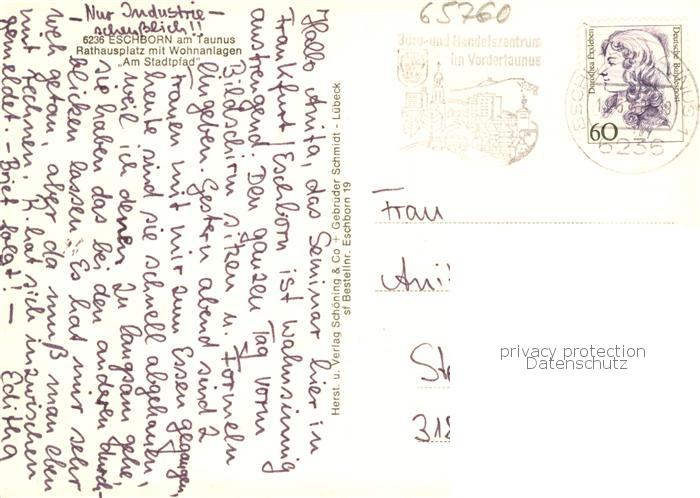 - Nur Industrie -
scheußlich!!
6236 ESCHBORN am Taunus
Rathausplatz mit Wohnanlagen
„Am Stadtpfad"
Hallo Anita, das Seminar hier in
Frankfurt/Eschborn ist wahnsinnig
anstregend. Den ganzen Tag vorm
Bildschirm sitzen u. Formeln
eingeben. Gestern abend sind 2
Frauen mit mir zum Essen gegangen,
heute sind sie schnell abgehauen,
weil ich denen zu langsam gehe,
sie haben das bei den anderen durch-
blicken lassen. Es hat mir sehr
weh getan, aber da muß man eben
mit rechnen. R. hat sich inzwischen
gemeldet. - Brief folgt! - Editha
Herst. u. Verlag Schöning & Co + Gebrüder Schmidt - Lübeck
sf Bestellnr. Eschborn 19
65760
Büro- und Handelszentrum
im Vordertaunus
Dorothea Erxleben
Deutsche Bundespost
60
6236
Frau
Ani
Ste
318
privacy protection
Datenschutz